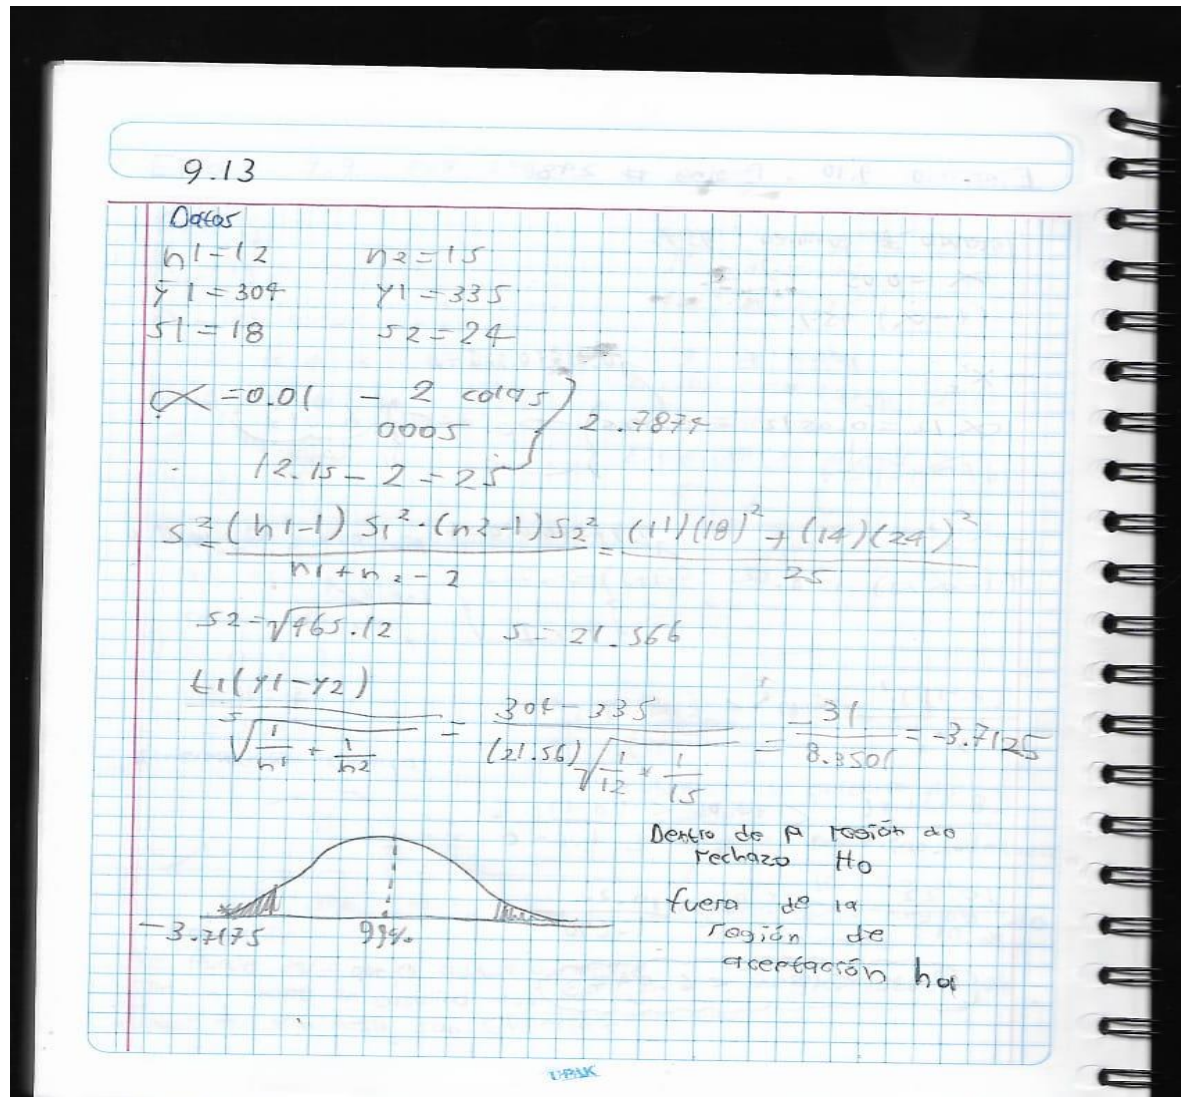 9.13
Datos
n1=12 n2=15
ȳ1=304 y1=335
s1=18 s2=24
α=0.01 - 2 colas
0005 } 2.7874
12.15-2=25
s²=(n1-1)s₁²·(n2-1)s₂² / n1+n2-2 = (11)(18)²+(14)(24)² / 25
s2=√465.12 s=21.566
t1(y1-y2) / s√1/n1+1/n2 = 304-335 / (21.56)√1/12+1/15 = -31 / 8.3501 = -3.7125
Dentro de la región de
rechazo Ho
fuera de la
región de
aceptación ha
-3.7175 99%
UPAK